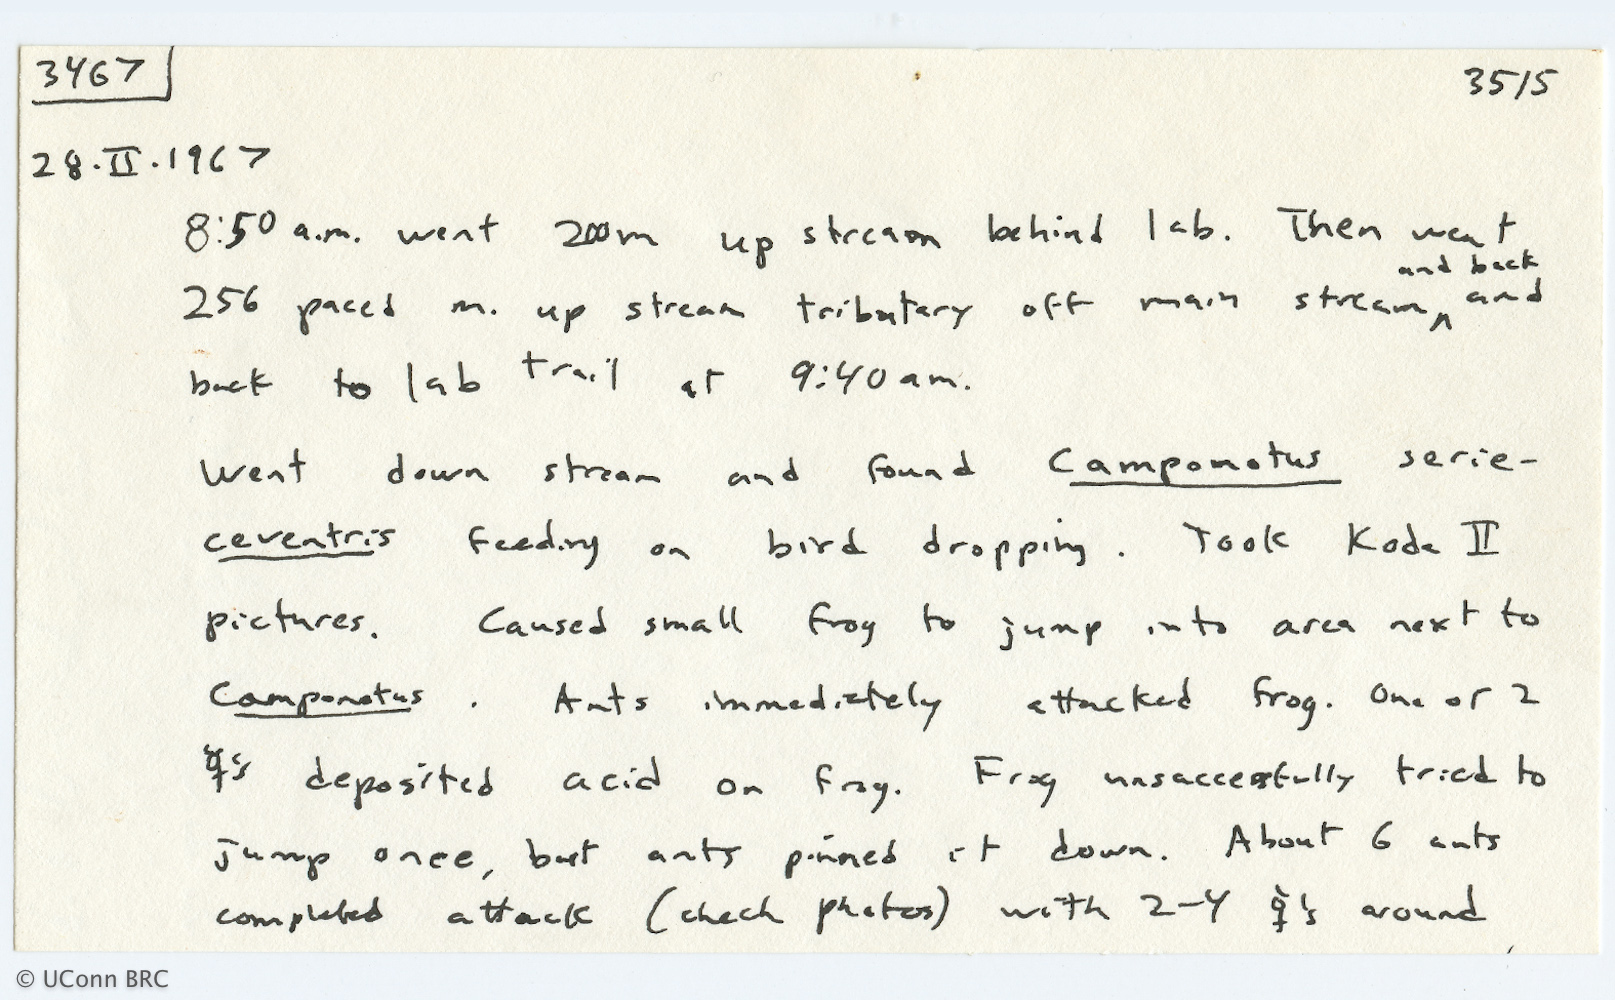 3467
3515
28.II.1967
8:50 a.m. went 200m up stream behind lab. Then went
and back
256 paced m. up stream tributary off main stream, ^ and
back to lab trail at 9:40 am.
Went down stream and found Camponotus serie-
ceventris feeding on bird dropping. Took Koda II
pictures. Caused small frog to jump into area next to
Camponotus. Ants immediately attacked frog. One or 2
☿'s deposited acid on frog. Frog unsuccessfully tried to
jump once, but ants pinned it down. About 6 ants
completed attack (check photos) with 2-4 ☿'s around
© UConn BRC